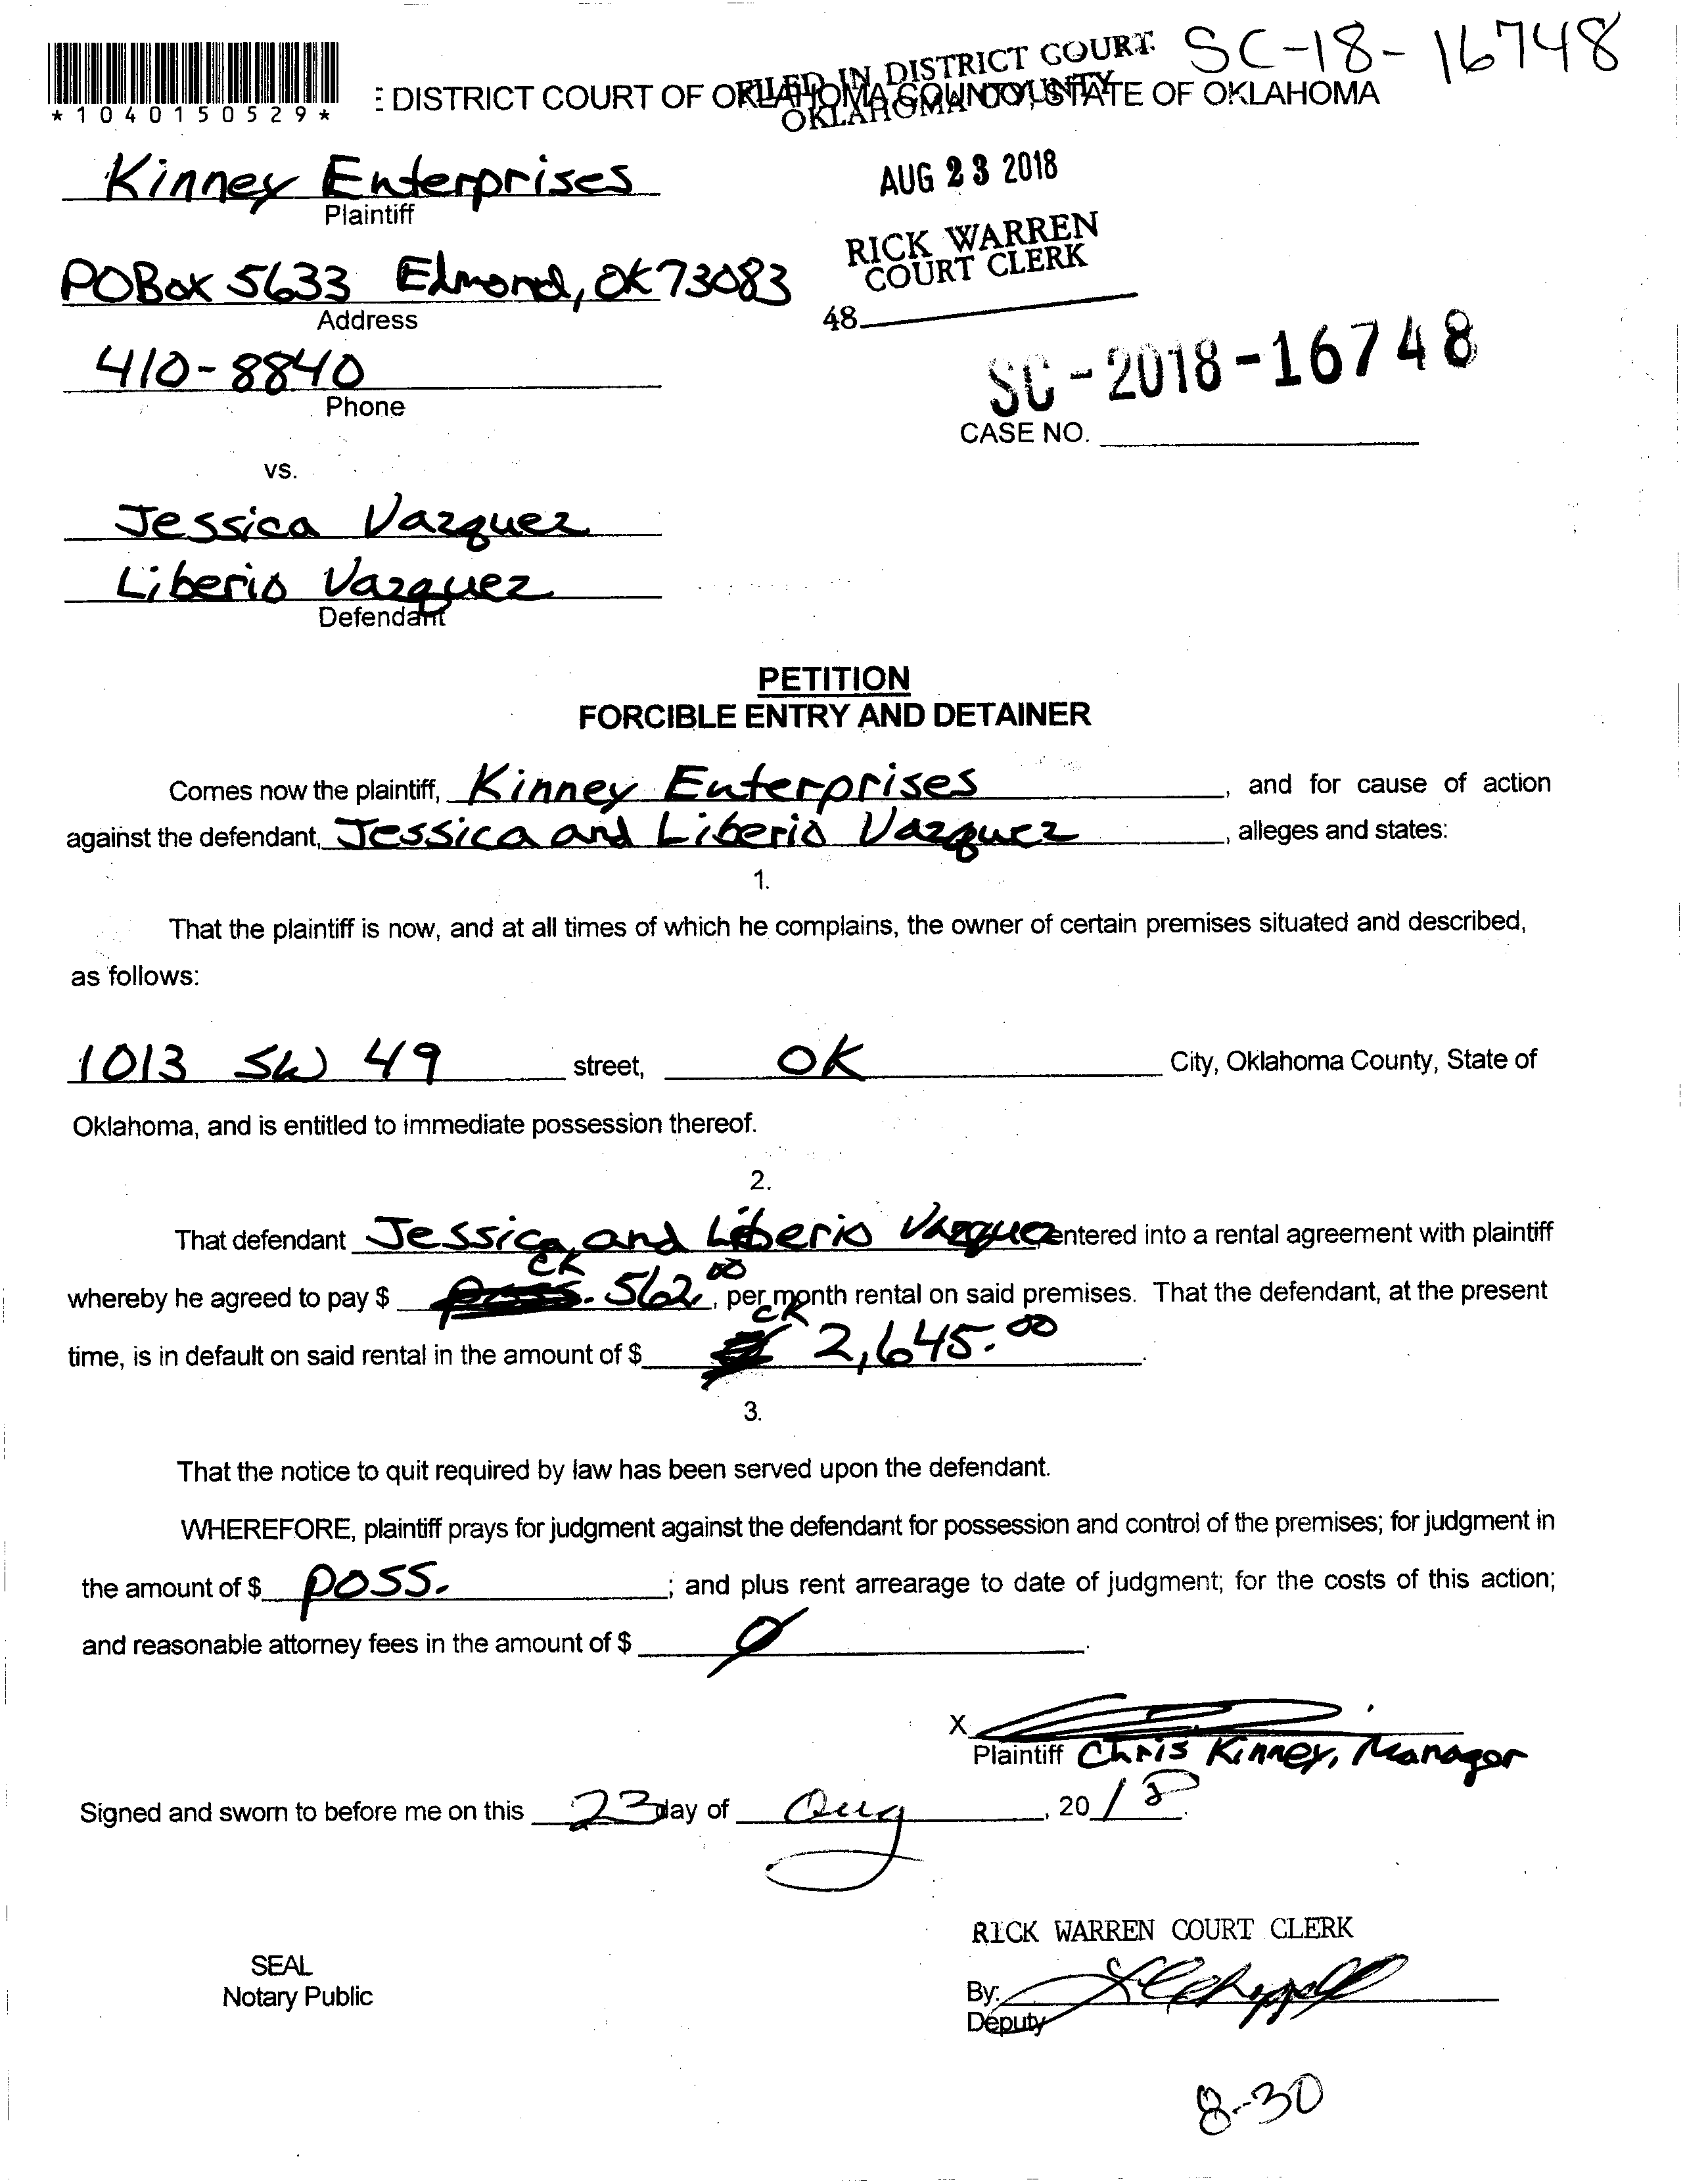 SC-18-16748
*1040150529*
DISTRICT COURT OF OKLAHOMA COUNTY, STATE OF OKLAHOMA
FILED IN DISTRICT COURT
OKLAHOMA COUNTY
Kinney Enterprises
Plaintiff
AUG 23 2018
RICK WARREN
COURT CLERK
POBox 5633 Edmond, OK 73083
Address
48
410-8840
Phone
SC-2018-16748
CASE NO.
vs.
Jessica Vazquez
Liberio Vazquez
Defendant
PETITION
FORCIBLE ENTRY AND DETAINER
Comes now the plaintiff, Kinney Enterprises, and for cause of action
against the defendant, Jessica and Liberio Vazquez, alleges and states:
1.
That the plaintiff is now, and at all times of which he complains, the owner of certain premises situated and described,
as follows:
1013 SW 49 street, OK City, Oklahoma County, State of
Oklahoma, and is entitled to immediate possession thereof.
2.
That defendant Jessica and Liberio Vazquez entered into a rental agreement with plaintiff
CK
whereby he agreed to pay $ 562.00, per month rental on said premises. That the defendant, at the present
CK
time, is in default on said rental in the amount of $ 2,645.00.
3.
That the notice to quit required by law has been served upon the defendant.
WHEREFORE, plaintiff prays for judgment against the defendant for possession and control of the premises; for judgment in
the amount of $ poss. ; and plus rent arrearage to date of judgment; for the costs of this action;
and reasonable attorney fees in the amount of $ 0.
X
Plaintiff Chris Kinney, Manager
Signed and sworn to before me on this 23 day of Aug, 2018.
RICK WARREN COURT CLERK
SEAL
Notary Public
By:
Deputy
8-30